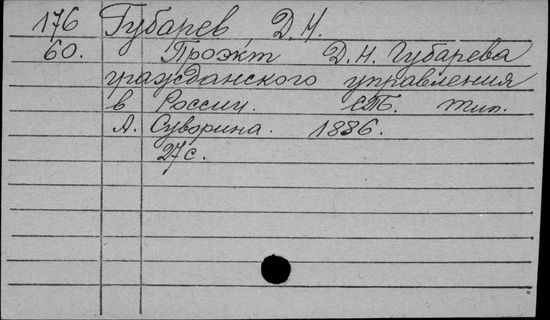 176 Губарев, Д. Н.
60. Проэкт Д. Н. Губарева
гражданского управления
в России. СПб. Тип.
А. Суворина. 1886.
27 с.